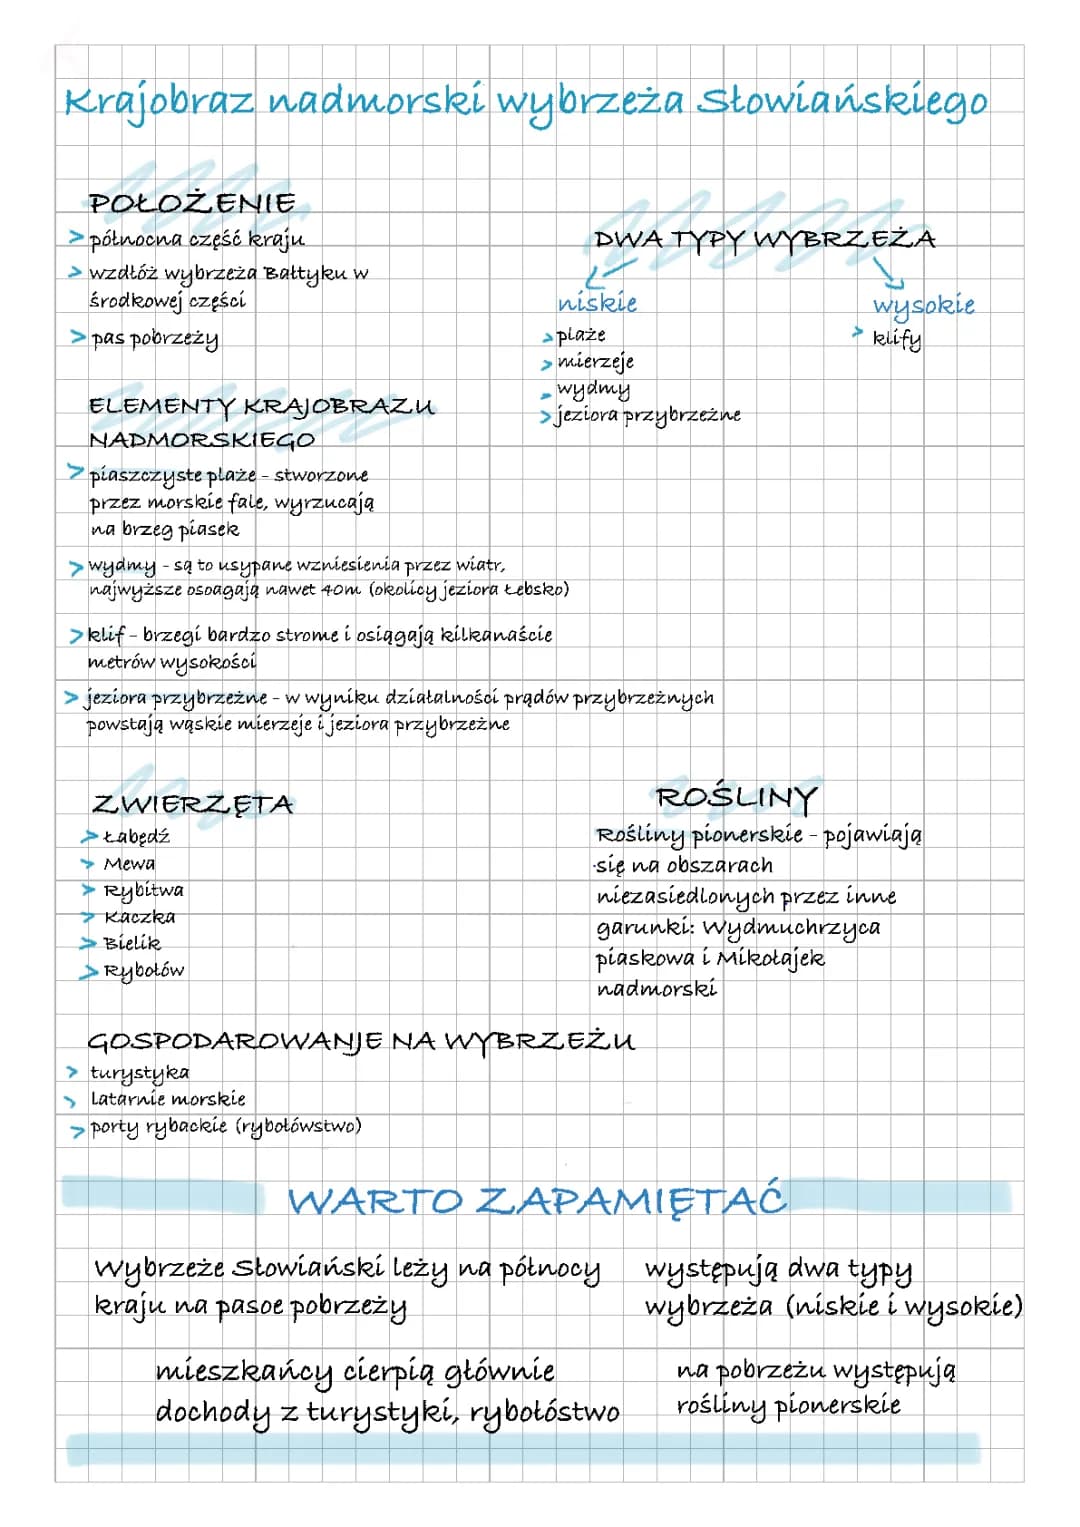 Krajobraz nadmorski wybrzeża Słowiańskiego
POŁOŻENIE
> północna część kraju
> wzdłóż wybrzeża Bałtyku w
środkowej części
> pas pobrzeży
DWA TYPY WYBRZEŻA
niskie
> plaże
> mierzeje
- wydmy
> jeziora przybrzeżne
wysokie
> klify
ELEMENTY KRAJOBRAZU
NADMORSKIEGO
> piaszczyste plaże - stworzone
przez morskie fale, wyrzucają
na brzeg piasek
> wydmy - są to usypane wzniesienia przez wiatr,
najwyższe osoagają nawet 40m (okolicy jeziora Łebsko)
> klif - brzegi bardzo strome i osiągają kilkanaście
metrów wysokości
> jeziora przybrzeżne - w wyniku działalności prądów przybrzeżnych
powstają wąskie mierzeje i jeziora przybrzeżne
ZWIERZĘTA
> Łabędź
> Mewa
> Rybitwa
> Kaczka
> Bielik
> Rybołów
ROŚLINY
Rośliny pionerskie - pojawiają
się na obszarach
niezasiedlonych przez inne
garunki: Wydmuchrzyca
piaskowa i Mikołajek
nadmorski
GOSPODAROWANJE NA WYBRZEŻU
> turystyka
> Latarnie morskie
> porty rybackie (rybołówstwo)
WARTO ZAPAMIĘTAĆ
Wybrzeże Słowiański leży na północy
kraju na pasoe pobrzeży
występują dwa typy
wybrzeża (niskie i wysokie)
mieszkańcy cierpią głównie
dochody z turystyki, rybołóstwo
na pobrzeżu występują
rośliny pionerskie